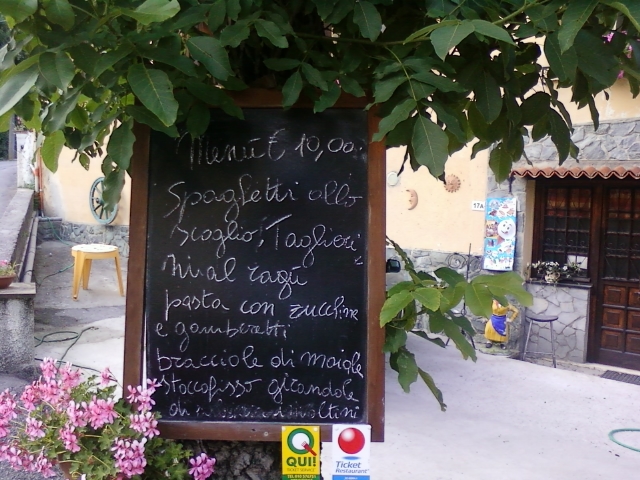 Menù € 10,00
Spaghetti allo
scoglio, Taglieri
ni al ragù
pasta con zucchine
e gamberetti
bracciole di maiale
stoccofisso girandole
di
17A
QUI!
Ticket
Restaurant